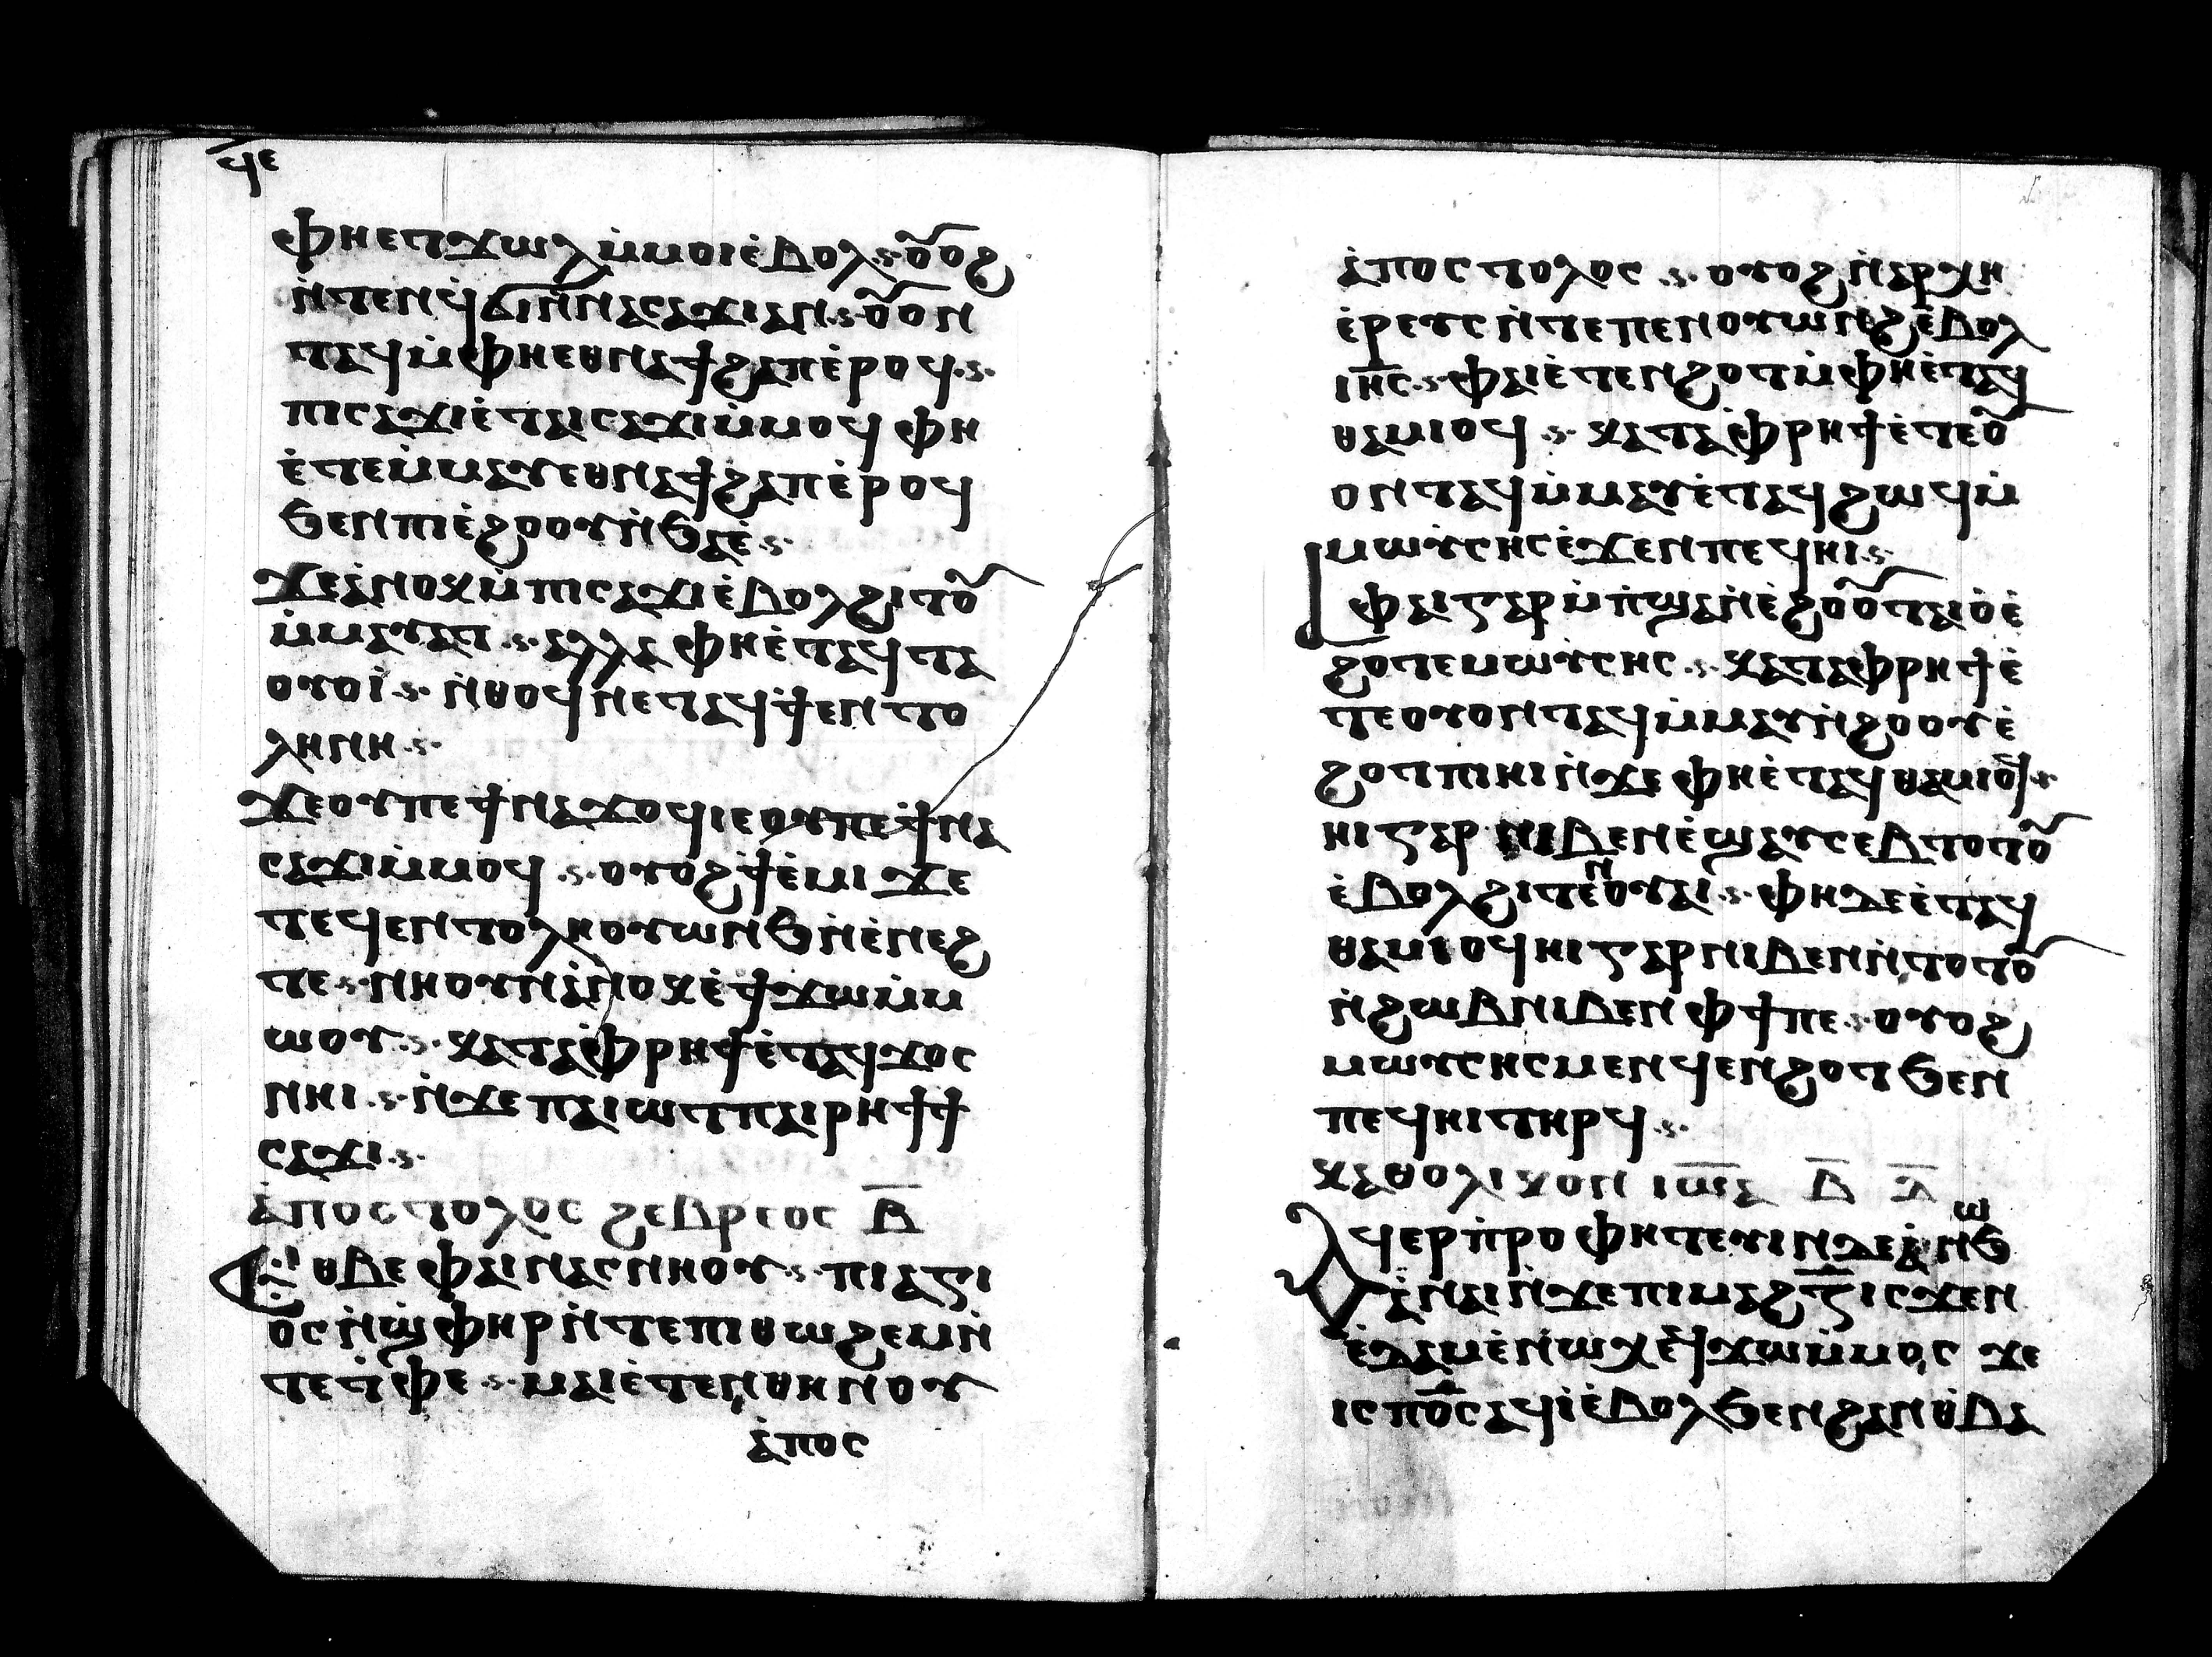 ϥⲉ
ⲫⲏⲉⲧϫⲱⲗⲙ̇ⲙⲟⲓⲉ̇ⲃⲟⲗ·ⲋ·ⲟ̅ⲟϩ
ⲛ̇ⲧⲉⲛϥϭⲓⲛ̇ⲛⲁⲥⲁϫⲓⲁⲛ·ⲋ·ⲟ̅ⲟⲛ
ⲧⲁϥⲙ̇ⲫⲏⲉⲑⲛⲁϯϩⲁⲡⲉ̇ⲣⲟϥ·ⲋ·
ⲡⲓⲥⲁϫⲓⲉ̇ⲧⲁⲓⲥⲁϫⲓⲙ̇ⲙⲟϥ ⲫⲏ
ⲉ̇ⲧⲉⲙ̇ⲙⲁⲩⲉⲑⲛⲁϯϩⲁⲡⲉ̇ⲣⲟϥ
ϧⲉⲛⲡⲓⲉ̇ϩⲟⲟⲩⲛ̇ϧⲁⲉ̇·ⲋ·
ϫⲉⲁ̇ⲛⲟⲕⲙ̇ⲡⲓⲥⲁϫⲓⲉ̇ⲃⲟⲗϩⲓⲧⲟ̅
ⲙ̇ⲙⲁⲩⲁⲧ·ⲋ·ⲁⲗⲗⲁ ⲫⲏⲉ̇ⲧⲁϥⲧⲁ
ⲟⲩⲟⲓ̇·ⲋ·ⲛ̇ⲑⲟϥⲡⲉⲧⲁϥϯⲉⲛⲧⲟ
ⲗⲏⲛⲏ·ⲋ·
ϫⲉⲟⲩⲡⲉϯⲛⲁϫⲟϥⲓⲉⲟⲩⲡⲉϯⲛⲁ
ⲥⲁϫⲓⲙ̇ⲙⲟϥ·ⲋ·ⲟⲩⲟϩϯⲉ̇ⲙⲓ ϫⲉ
ⲧⲉϥⲉⲛⲧⲟⲗⲏⲟⲩⲱⲛϧⲛ̇ⲉ̇ⲛⲉϩ
ⲧⲉ·ⲋ·ⲛⲏⲟⲩⲛⲁ̇ⲛⲟⲕⲉ̇ϯϫⲱⲙ̇ⲙ
ⲱⲟⲩ·ⲋ·ⲕⲁⲧⲁⲫ̇ⲣⲏϯⲉ̇ⲧⲁϥϫⲟⲥ
ⲛⲏⲓ·ⲋ·ⲛ̇ϫⲉⲡⲁⲓⲱⲧⲡⲁⲓⲣⲏϯϯ
ⲥⲁϫⲓ·ⲋ·
ⲁ̇ⲡⲟⲥⲧⲟⲗⲟⲥ ϩⲉⲃⲣⲉⲟⲥ ⲃ̅
Ⲉⲑⲃⲉ ⲫⲁⲓⲛⲁⲥⲛⲏⲟⲩ·ⲋ·ⲡⲓⲁⲅⲓ
ⲟⲥⲛ̇ϣⲫⲏⲣⲛ̇ⲧⲉⲡⲓⲑⲱϩⲉⲙⲛ̇
ⲧⲉⲧ̇ⲫⲉ·ⲋ·ⲙⲁⲓⲉ̇ⲧⲉⲛⲑⲏⲛⲟⲩ
ⲁ̇ⲡⲟⲥ
ⲁ̇ⲡⲟⲥⲧⲟⲗⲟⲥ·ⲋ·ⲟⲩⲟϩⲛ̇ⲁⲣⲭⲏ
ⲉ̇ⲣⲉⲩⲥⲛ̇ⲧⲉⲡⲉⲛⲟⲩⲱⲛϩⲉ̇ⲃⲟⲗ
ⲓⲏ̅ⲥ·ⲋ·ⲫⲁⲓⲉ̇ⲧⲉⲛϩⲟⲧⲙ̇ⲫⲏⲉ̇ⲧⲁϥ
ⲑⲁⲙⲓⲟϥ·ⲋ·ⲕⲁⲧⲁⲫ̇ⲣⲏϯⲉ̇ⲧⲉⲟ̅
ⲟⲛⲧⲁϥⲙ̇ⲙⲁⲩⲉ̇ⲧⲁϥϩⲱϥⲙ̇
ⲙⲱⲩⲥⲏⲥⲉ̇ϫⲉⲛⲡⲉϥⲏⲓ·ⲋ·
ⲫⲁⲓⲅⲁⲣⲙ̇ⲡ̇ϣⲁⲛ̇ⲉ̇ϩⲟⲟ̅ⲧⲁⲓⲟ̇ⲉ̇
ϩⲟⲧⲉⲙⲱⲩⲥⲏⲥ·ⲋ·ⲕⲁⲧⲁⲫⲣⲏϯⲉ̇
ⲧⲉⲟⲩⲟⲛⲧⲁϥⲙ̇ⲙⲁⲩⲛ̇ϩⲟⲟⲩⲉ̇
ϩⲟⲧⲡⲓⲏⲓⲛ̇ϫⲉ ⲫⲏⲉ̇ⲧⲁϥⲑⲁⲙⲓⲟϥ·ⲋ·
ⲏⲓⲅⲁⲣ ⲛⲓⲃⲉⲛⲉ̇ϣⲁⲩⲥⲉⲃⲧⲟⲧⲟ̅
ⲉ̇ⲃⲟⲗϩⲓⲧⲉⲛⲟⲩⲁⲓ·ⲋ·ⲫⲏⲇⲉⲉ̇ⲧⲁϥ
ⲑⲁⲙⲓⲟϥⲏⲓⲅⲁⲣⲛⲓⲃⲉⲛⲛ̇ⲧⲟⲧⲟ̅
ⲛ̇ϩⲱⲃⲛⲓⲃⲉⲛ ⲫϯⲡⲉ·ⲋ·ⲟⲩⲟϩ
ⲙⲱⲩⲥⲏⲥⲙⲉⲛϥⲉⲛϩⲟⲧ ϧⲉⲛ
ⲡⲉϥⲏⲓⲧⲏⲣϥ·ⲋ·
ⲕⲁⲑⲟⲗⲓⲕⲟⲛ ⲓⲱ̅ⲇ ⲃ̅ ⲇ̅
Ⲁϥⲉⲣⲡ̇ⲣⲟⲫⲏⲧⲉⲩⲓⲛϫⲉⲉ̇ⲛⲱϧ
ⲁ̇ⲛⲁⲓⲛ̇ϫⲉⲡⲓⲙⲁϩⲍ̅ⲓⲥϫⲉⲛ
ⲉ̇ⲇⲁⲙⲉ̇ⲛⲱⲭⲉϥϫⲱⲙ̇ⲙⲟⲥ ϫⲉ
ⲓⲥⲡⲟ̅ⲥⲁϥⲓ̇ⲉ̇ⲃⲟⲗϧⲉⲛϩⲁⲛⲑ̇ⲃⲁ